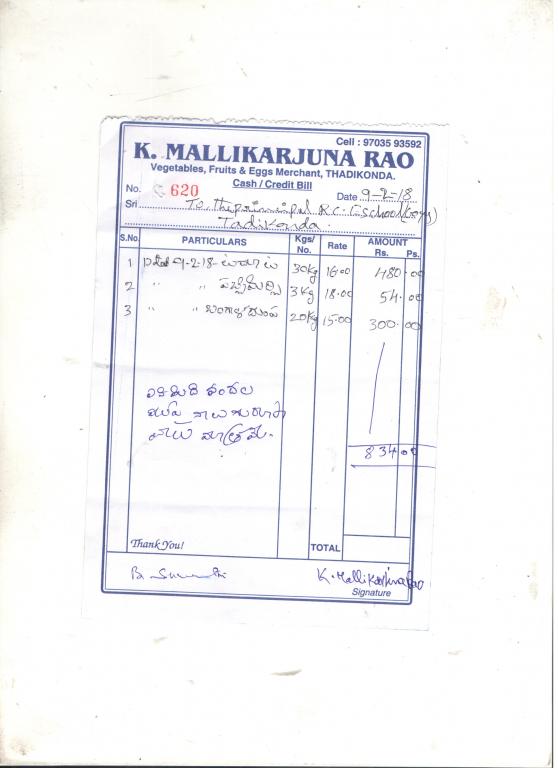 Cell : 97035 93592
K. MALLIKARJUNA RAO
Vegetables, Fruits & Eggs Merchant, THADIKONDA.
Cash / Credit Bill
No. 620 Date 9-2-18
Sri To. The principal R.C. School (Boys)
Tadikonda
S.No. PARTICULARS Kgs/ No. Rate AMOUNT Rs. Ps.
1 9-2-18- టమాట 30kg 16.00 480.00
2 " " పచ్చిమిర్చి 3kg 18.00 54.00
3 " " బంగాళదుంప 20kg 15.00 300.00
ఎనిమిది వందల
ముప్పై నాలుగు రూపా
యలు మాత్రమే.
834.00
Thank You! TOTAL
K. Mallikarjuna Rao
Signature